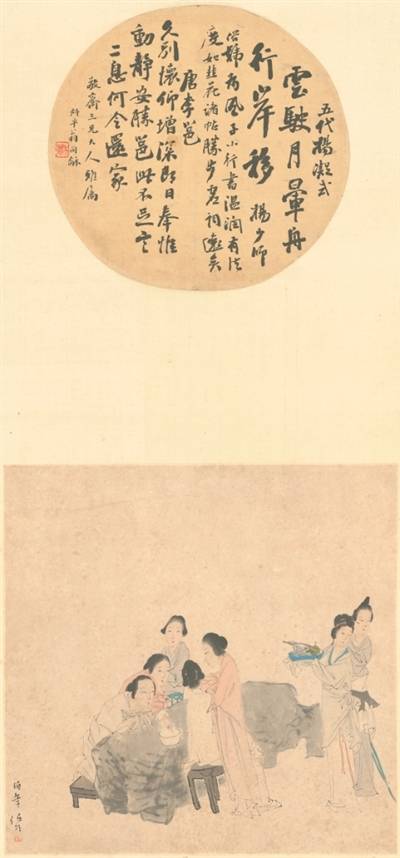 五代楊凝式
雲駛月暈舟
行岸移 楊少師
俗號為風子小行書溫潤有法
度如韭花諸帖勝步虛詞遠矣
唐李邕
久別懷仰增深即日奉惟
動靜安勝邕此不足言
二息何令還家
敬齋三兄大人雅屬
叔平翁同龢